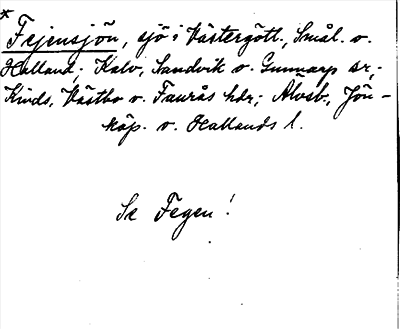 * Fejensjön, sjö i Västergötl., Smål. o.
Halland; Kalv, Sandvik o. Gunnarp sr,;
Kinds, Västbo o. Faurås hdr; Älvsb., Jön-
köp. o. Hallands l.
Se Fegen!